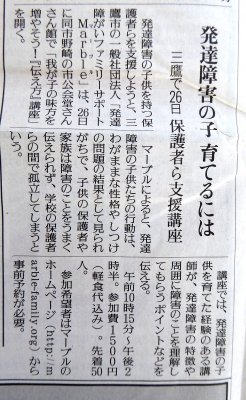 発達障害の子 育てるには
三鷹で26日 保護者ら支援講座
発達障害の子供を持つ保
護者らを支援しようと、三
鷹市の一般社団法人「発達
障がいファミリーサポート
Marble」は、26日
に同市野崎の市公会堂さん
さん館で「我が子の味方を
増やそう！『伝え方』講座」
を開く。
マーブルによると、発達
障害の子供たちの行動は、
わがままな性格やしつけ
の問題の結果として見られ
がちで、子供の保護者や
家族は障害のことをうまく
伝えられず、学校の保護者
らの間で孤立してしまうと
いう。
講座では、発達障害の子
供を育てた経験のある講
師が、発達障害の特徴や
周囲に障害のことを理解し
てもらうポイントなどを
伝える。
午前10時15分～午後2
時半。参加費1500円
（軽食代込み）。先着50
人。
参加希望者はマーブルの
ホームページ（http://m
arble-family.org/）から
事前予約が必要。